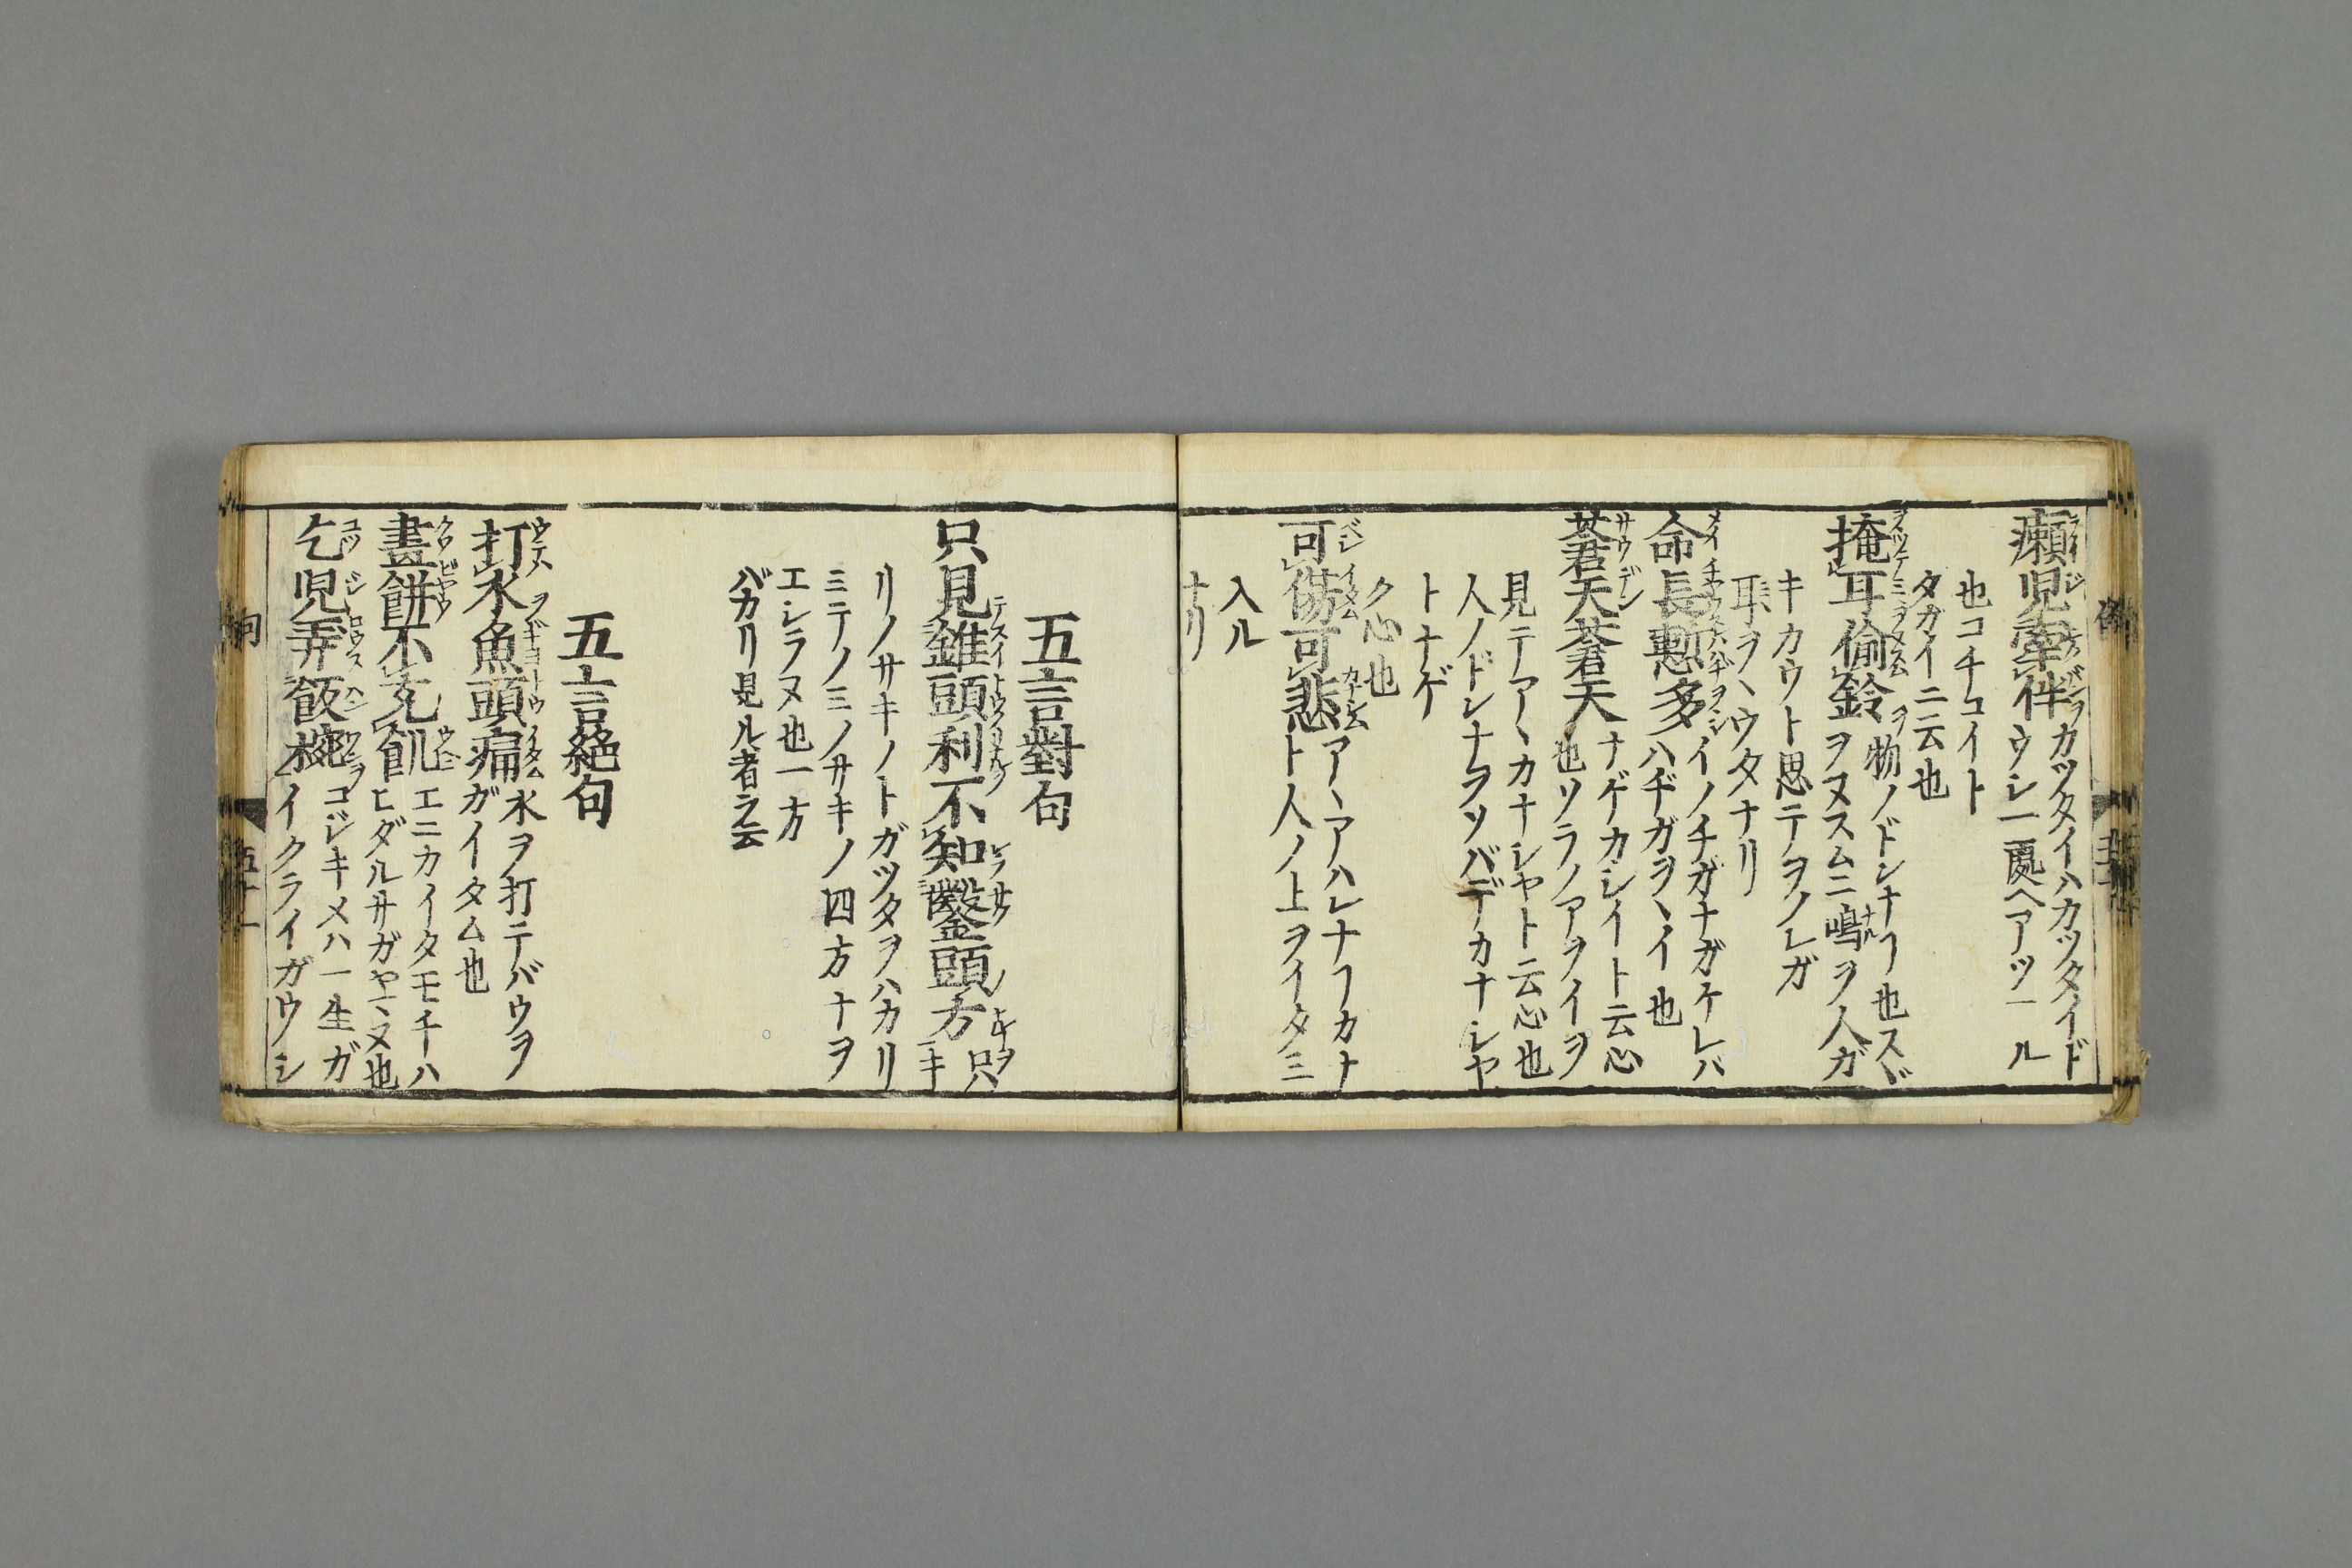 癩児牽伴カッタイハカッタイド
ウシ一処ヘアツヽル
也コチコイト
タガイニ云也
掩耳偸鈴物ノドンナヿ也スヾ
ヲヌスムニ鳴ヲ人ガ
キカウト思テヲノレガ
耳ヲヽウタナリ
命長慙多イノチガナガケレバ
ハヂガヲヽイ也
蒼天蒼天ナゲカシイト云心
也ソラノアヲイヲ
見テアヽカナシヤト云心也
人ノドンナヲソバデカナシヤ
トナゲ
ク心也
可傷可悲アヽアハレナヿカナ
ト人ノ上ヲイタミ
入ル
ナリ
五言對句
只見錐頭利不知鑿頭方只キ
リノサキノトガッタヲハカリ
ミテノミノサキノ四方ナヲ
エシラヌ也一方
バカリ見ル者ヲ云
五言絶句
打水魚頭痛水ヲ打テバウヲ
ガイタム也
畫餅不充飢エニカイタモチハ
ヒダルサガヤマヌ也
乞児弄飯椀コジキメハ一生ガ
イクライガウシ
五十一